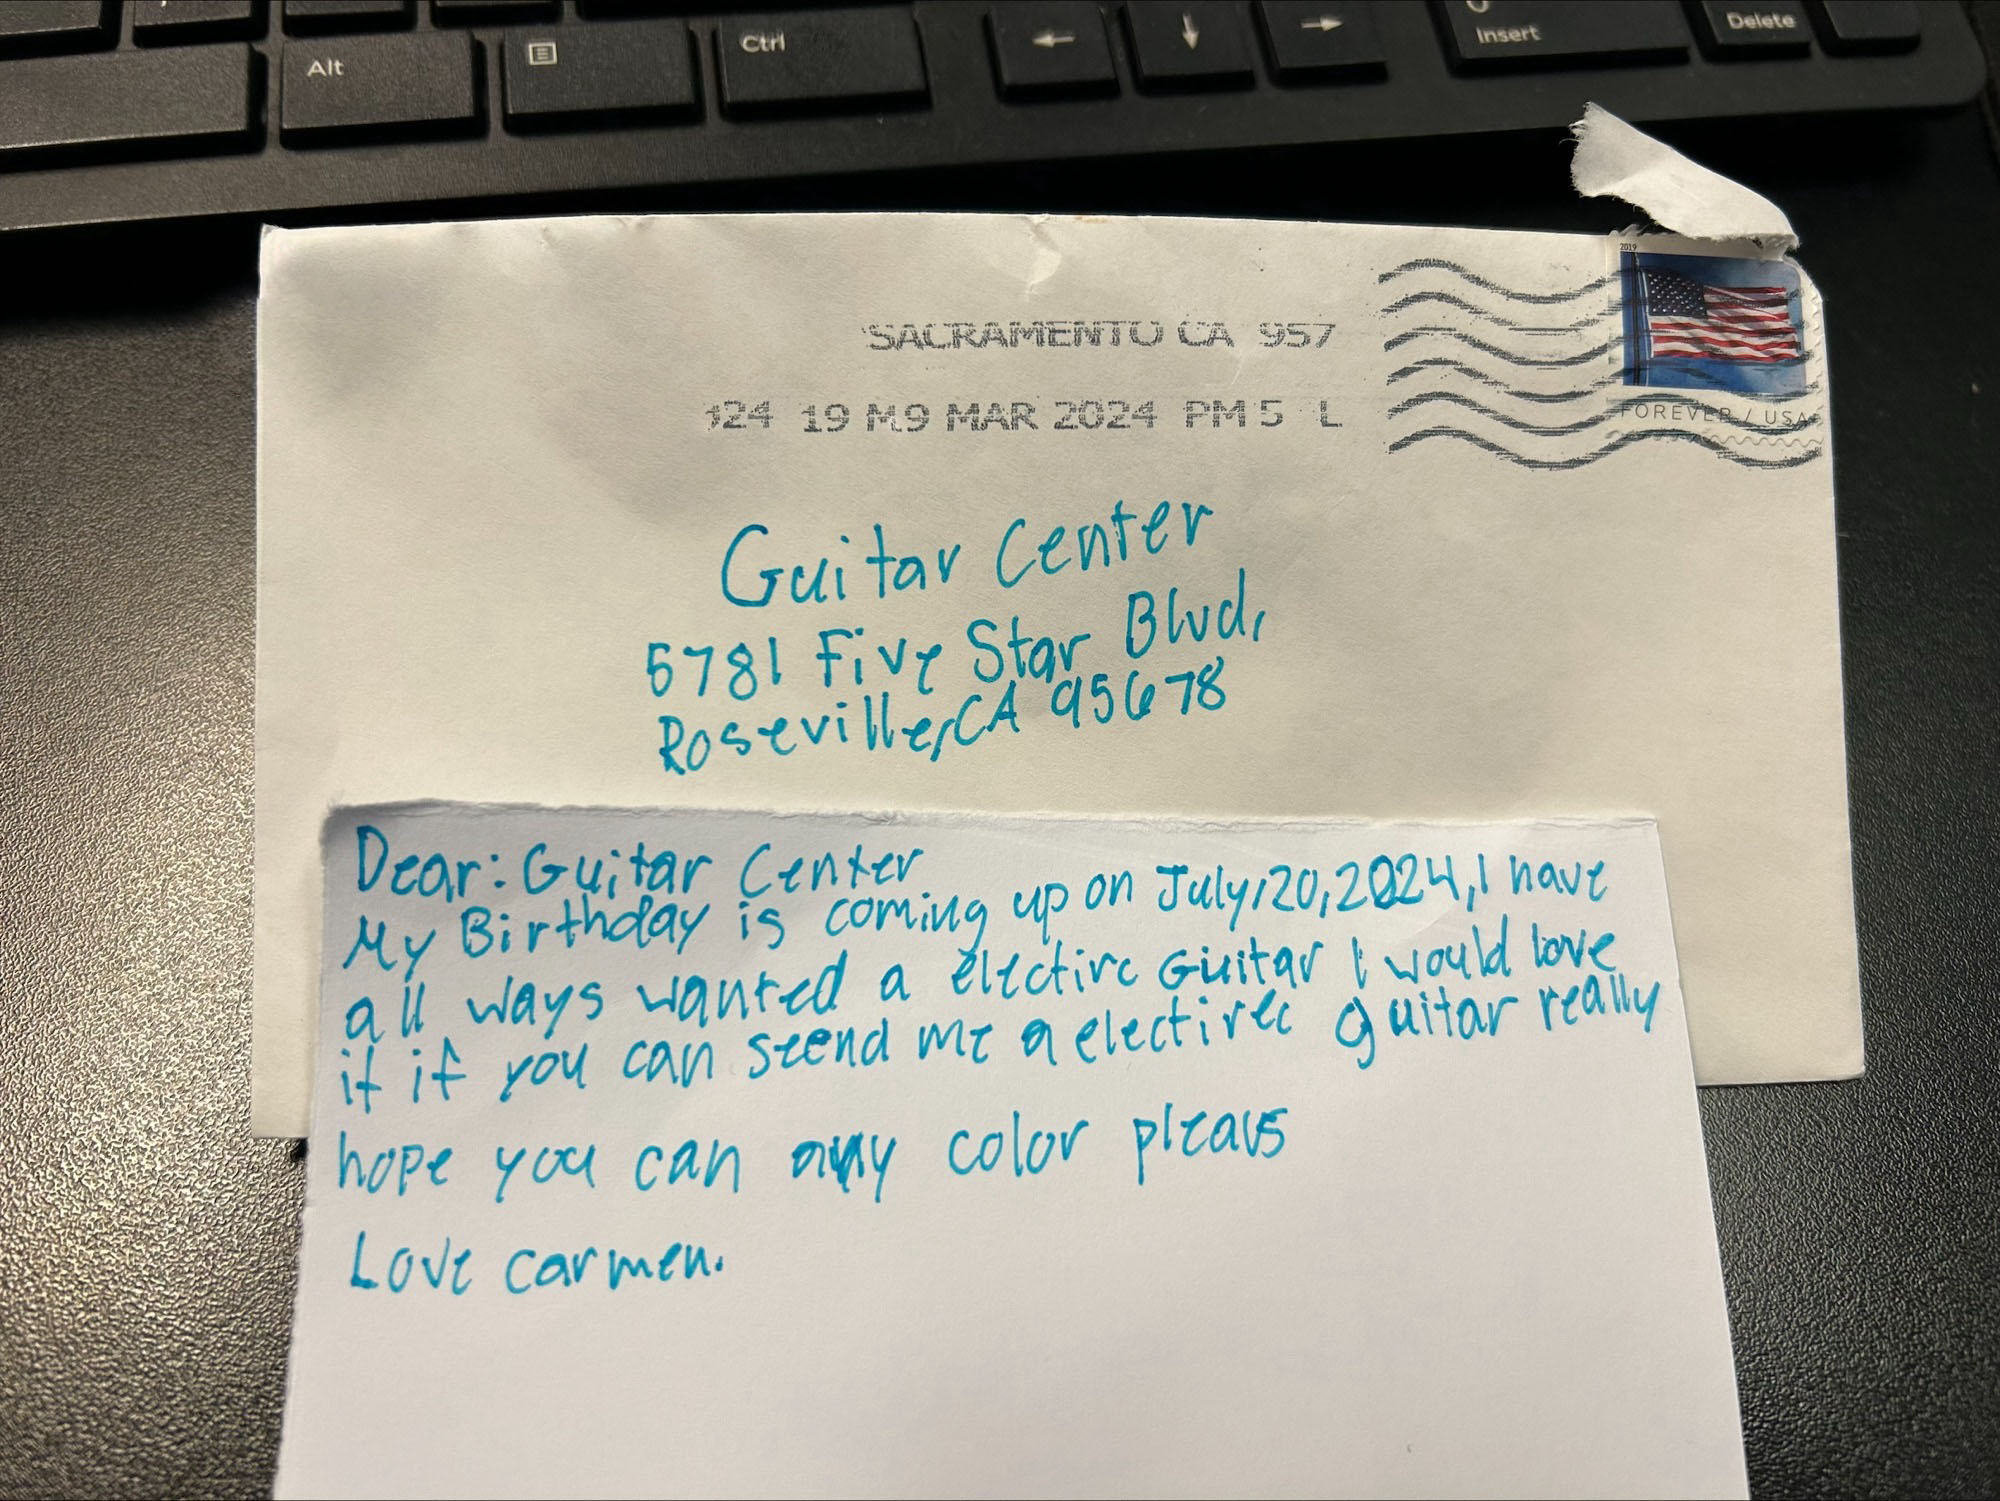 Alt
Ctrl
Insert
Delete
2019
SACRAMENTO CA 957
24 19 MAR 2024 PM 5 L
FOREVER / USA
Guitar Center
5781 Five Star Blvd,
Roseville, CA 95678
Dear: Guitar Center
My Birthday is coming up on July,20,2024, I have
all ways wanted a electirc Guitar I would love
it if you can seend me a electirec guitar really
hope you can any color pleavs
Love carmen.